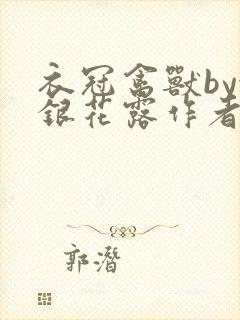 衣冠禽獸by
銀花露作者
郭潛